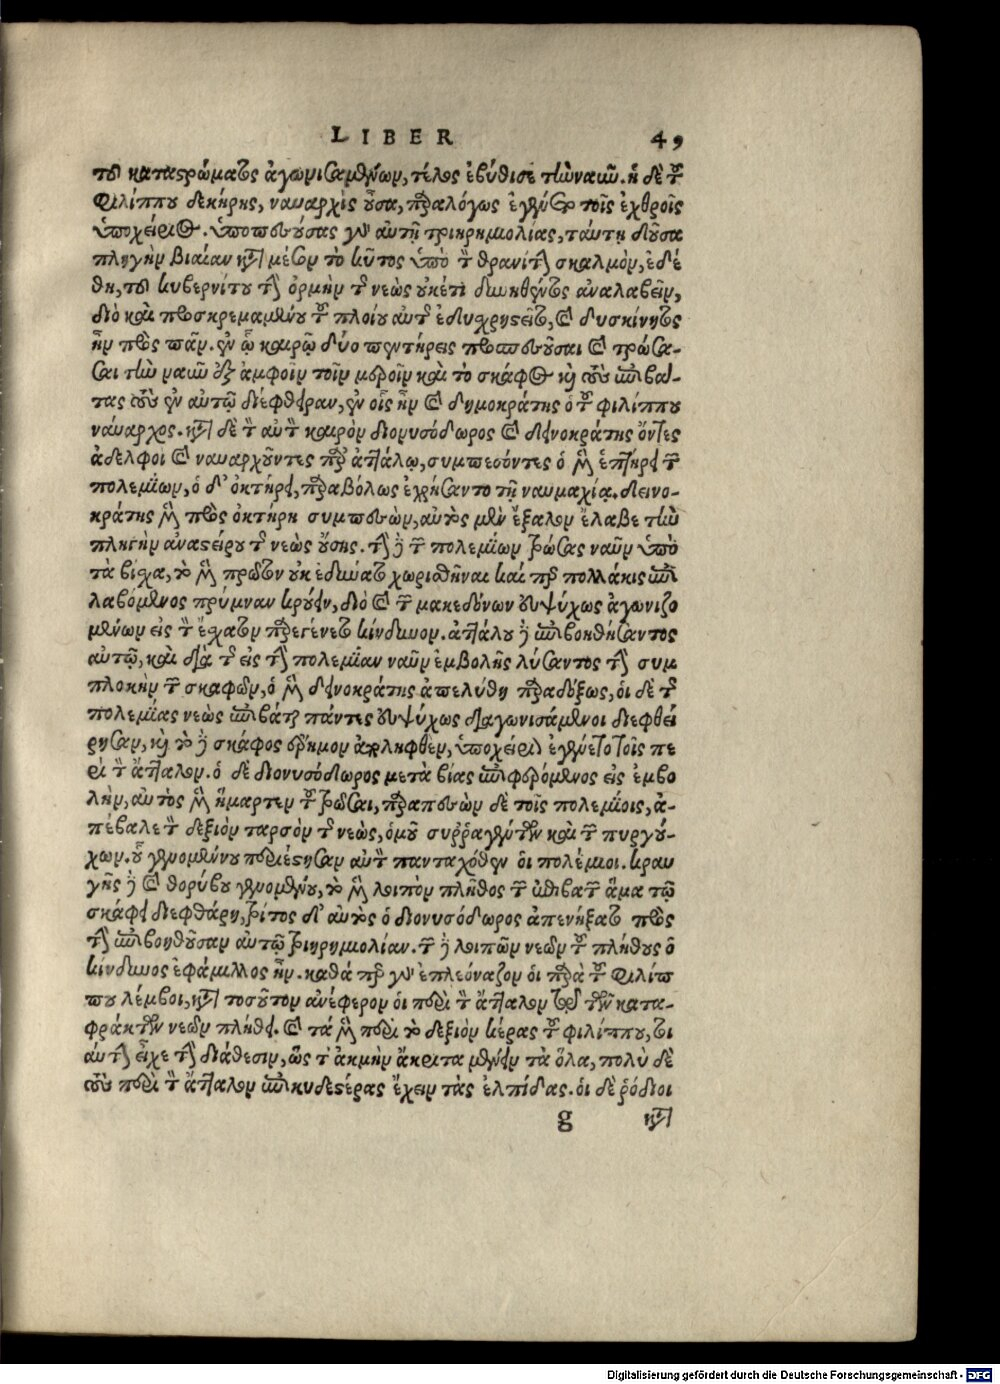 LIBER 49
τοῦ καταστρώματος ἀγωνισαμένων, τέλος ἐβύθισε τὴν ναῦν. ἡ δὲ τοῦ
Φιλίππου δεκήρης, ναυαρχὶς οὖσα, παραλόγως ἐγένετο τοῖς ἐχθροῖς
ὑποχείριος. ὑποπεσούσας γὰρ αὐτῇ τριηρημιολίας, ταύτῃ δοῦσα
πληγὴν βιαίαν κατὰ μέσον τὸ κῦτος ὑπὸ τὸν θρανίτην σκαλμὸν, ἐδέ
θη, τοῦ κυβερνίτου τὴν ὁρμὴν τῆς νεὼς οὐκέτι δυνηθέντος ἀναλαβεῖν,
διὸ καὶ προσκρεμαμένου τοῦ πλοίου αὐτῆς ἐδυχρηστεῖτο, καὶ δυσκίνητος
ἦν πρὸς πᾶν. ἐν ᾧ καιρῷ δύο πεντήρεις προσπεσοῦσαι καὶ τρώσα-
σαι τὴν ναῦν ἐξ ἀμφοῖν τοῖν μεροῖν καὶ τὸ σκάφος καὶ τοὺς ἐπιβά-
τας τοὺς ἐν αὐτῷ διέφθειραν, ἐν οἷς ἦν καὶ δημοκράτης ὁ τοῦ φιλίππου
ναύαρχος. κατὰ δὲ τὸν αὐτὸν καιρὸν διονυσόδωρος καὶ δεινοκράτης ὄντες
ἀδελφοι καὶ ναυαρχοῦντες παρ' ἀττάλῳ, συμπεσόντες ὁ μὲν ἑπτήρει τῶν
πολεμίων, ὁ δ' ὀκτήρει, παραβόλως ἐχρήσαντο τῇ ναυμαχίᾳ. δεινο-
κράτης μὲν πρὸς ὀκτήρη συμπεσὼν, αὐτὸς μὲν ἔξαλον ἔλαβε τὴν
πληγὴν ἀναστείρου τῆς νεὼς οὔσης. τὴν δὲ τῶν πολεμίων τρώσας ναῦν ὑπὸ
τὰ βίαχα, τὸ μὲν πρῶτον οὐκ ἐδύνατο χωρισθῆναι καίπερ πολλάκις ἐπι
λαβόμενος πρύμναν κρούειν, διὸ καὶ τῶν μακεδόνων εὐψύχως ἀγωνιζο
μένων εἰς τὸν ἔσχατον παρεγένετο κίνδυνον. ἀττάλου δὲ ἐπιβοηθήσαντος
αὐτῷ, καὶ διὰ τῆς εἰς τὴν πολεμίαν ναῦν ἐμβολῆς λύσαντος τὴν συμ
πλοκὴν τῶν σκαφῶν, ὁ μὲν δεινοκράτης ἀπελύθη παραδόξως, οἱ δὲ τῆς
πολεμίας νεὼς ἐπιβάται πάντες εὐψύχως διαγωνισάμενοι διεφθά
ρησαν, καὶ τὸ δὲ σκάφος ἔρημον ἀπολειφθὲν, ὑποχείριον ἐγένετο τοῖς πε
ρὶ τὸν ἄτταλον. ὁ δὲ διονυσόδωρος μετὰ βίας ἐπιφερόμενος εἰς ἐμβο
λὴν, αὐτὸς μὲν ἥμαρτεν τοῦ τρῶσαι, παραπεσὼν δὲ τοῖς πολεμίοις, ἀ-
πέβαλε τὸν δεξιὸν ταρσὸν τῆς νεὼς, ὁμοῦ συῤῥαγέντων καὶ τῶν πυργού-
χων. οὗ γενομένου περιέστησαν αὐτὸν πανταχόθεν οἱ πολέμιοι. κραυ
γῆς δὲ καὶ θορύβου γενομένου, τὸ μὲν λοιπὸν πλῆθος τῶν ἐπιβατῶν ἅμα τῷ
σκάφει διεφθάρη, τρίτος δ' αὐτὸς ὁ διονυσόδωρος ἀπενήξατο πρὸς
τὴν ἐπιβοηθοῦσαν αὐτῷ τριηρημιολίαν. τῶν δὲ λοιπῶν νεῶν τοῦ πλήθους ὁ
κίνδυνος ἐφάμιλλος ἦν. καθά περ γὰρ ἐπλεόναζον οἱ παρὰ τοῦ Φιλίπ
που λέμβοι, κατὰ τοσοῦτον ἀνέφερον οἱ περὶ τὸν ἄτταλον τῷ τῶν κατα-
φράκτων νεῶν πλήθει. καὶ τὰ μὲν περὶ τὸ δεξιὸν κέρας τοῦ φιλίππου, τοι
αύτην εἶχε τὴν διάθεσιν, ὥς τ' ἀκμὴν ἄκριτα μένειν τὰ ὅλα, πολὺ δὲ
τοὺς περὶ τὸν ἄτταλον ἐπικυδεστέρας ἔχειν τὰς ἐλπίδας. οἱ δὲ ῥόδιοι
g κατὰ
Digitalisierung gefördert durch die Deutsche Forschungsgemeinschaft - DFG